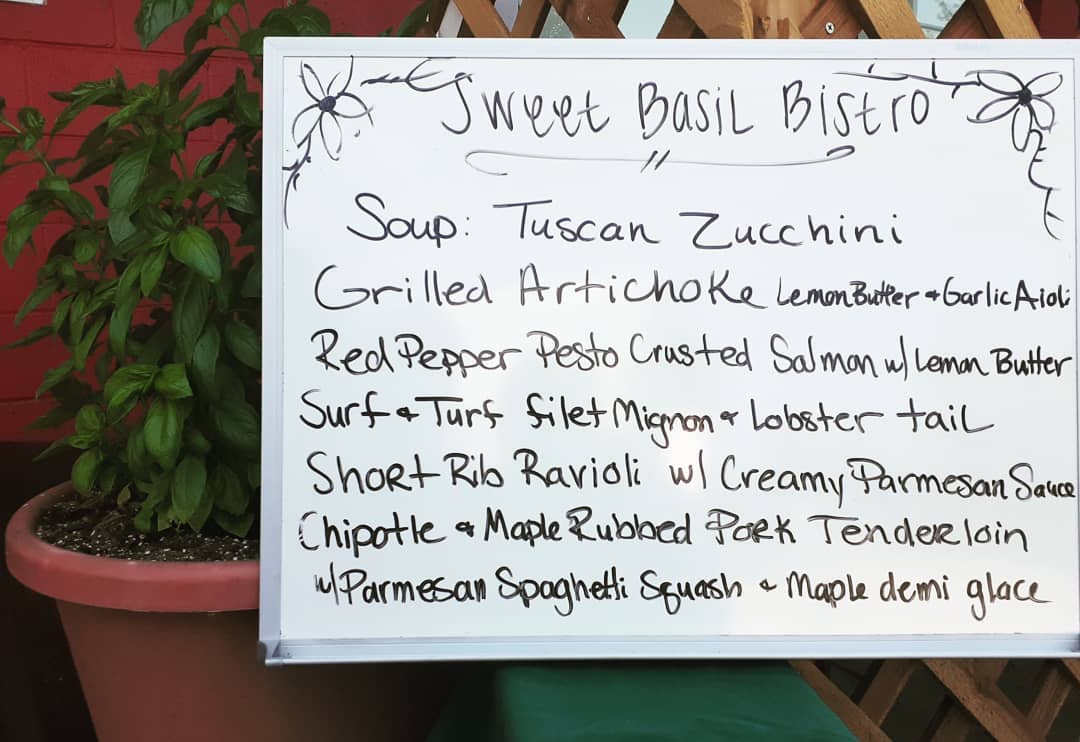 Sweet Basil Bistro
Soup: Tuscan Zucchini
Grilled Artichoke Lemon Butter & Garlic Aioli
Red Pepper Pesto Crusted Salmon w/ Lemon Butter
Surf & Turf filet Mignon & Lobster tail
Short Rib Ravioli w/ Creamy Parmesan Sauce
Chipotle & Maple Rubbed Pork Tenderloin
w/ Parmesan Spaghetti Squash & Maple demi glace